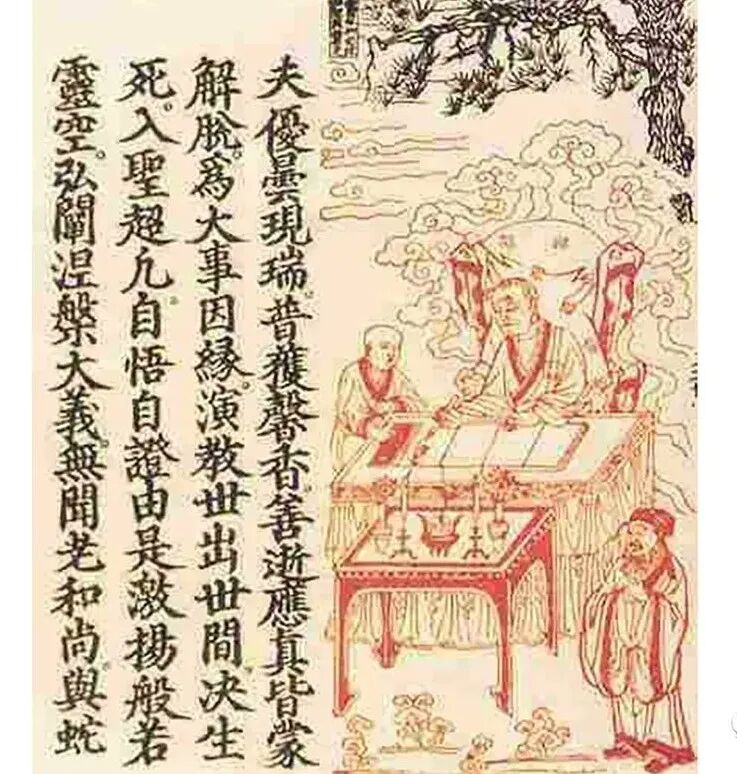 夫優曇現瑞。普獲馨香。善逝應真皆蒙
解脫。為大事因縁。演教世出世間。决生
死。入聖超凡。自悟自證由是激揚般若
靈空。弘闡涅槃大義。無聞老和尚與蛇